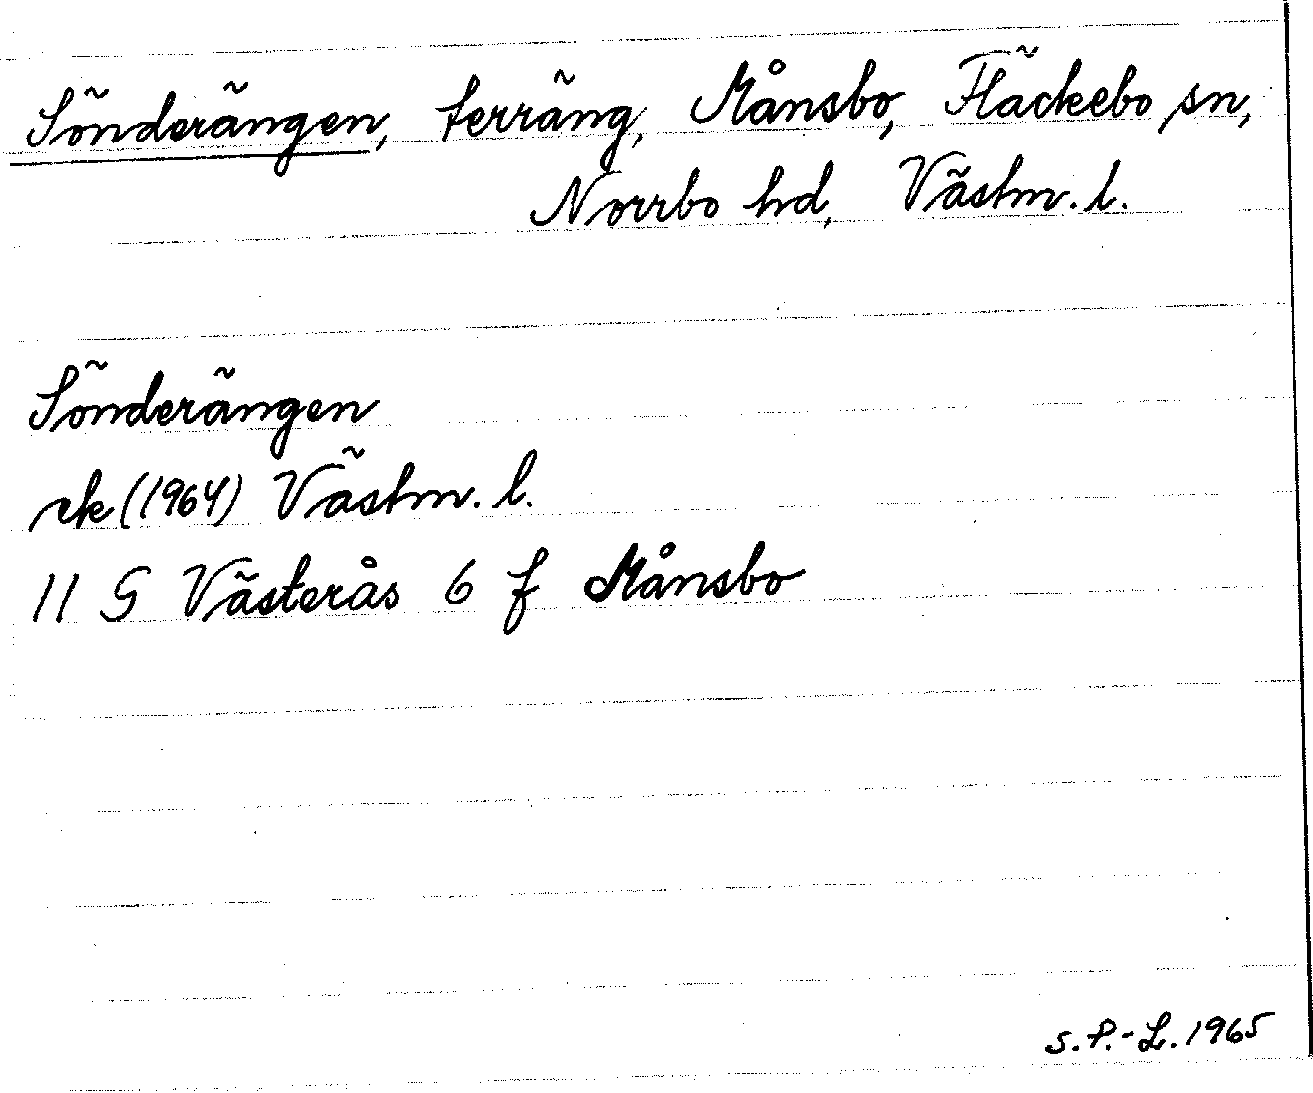 Sönderängen, terräng, Månsbo, Fläckebo sn,
Norrbo hd, Västm. l.
Sönderängen
rk (1964) Västm. l.
11 G Västerås 6 f Månsbo
S. P.-L. 1965